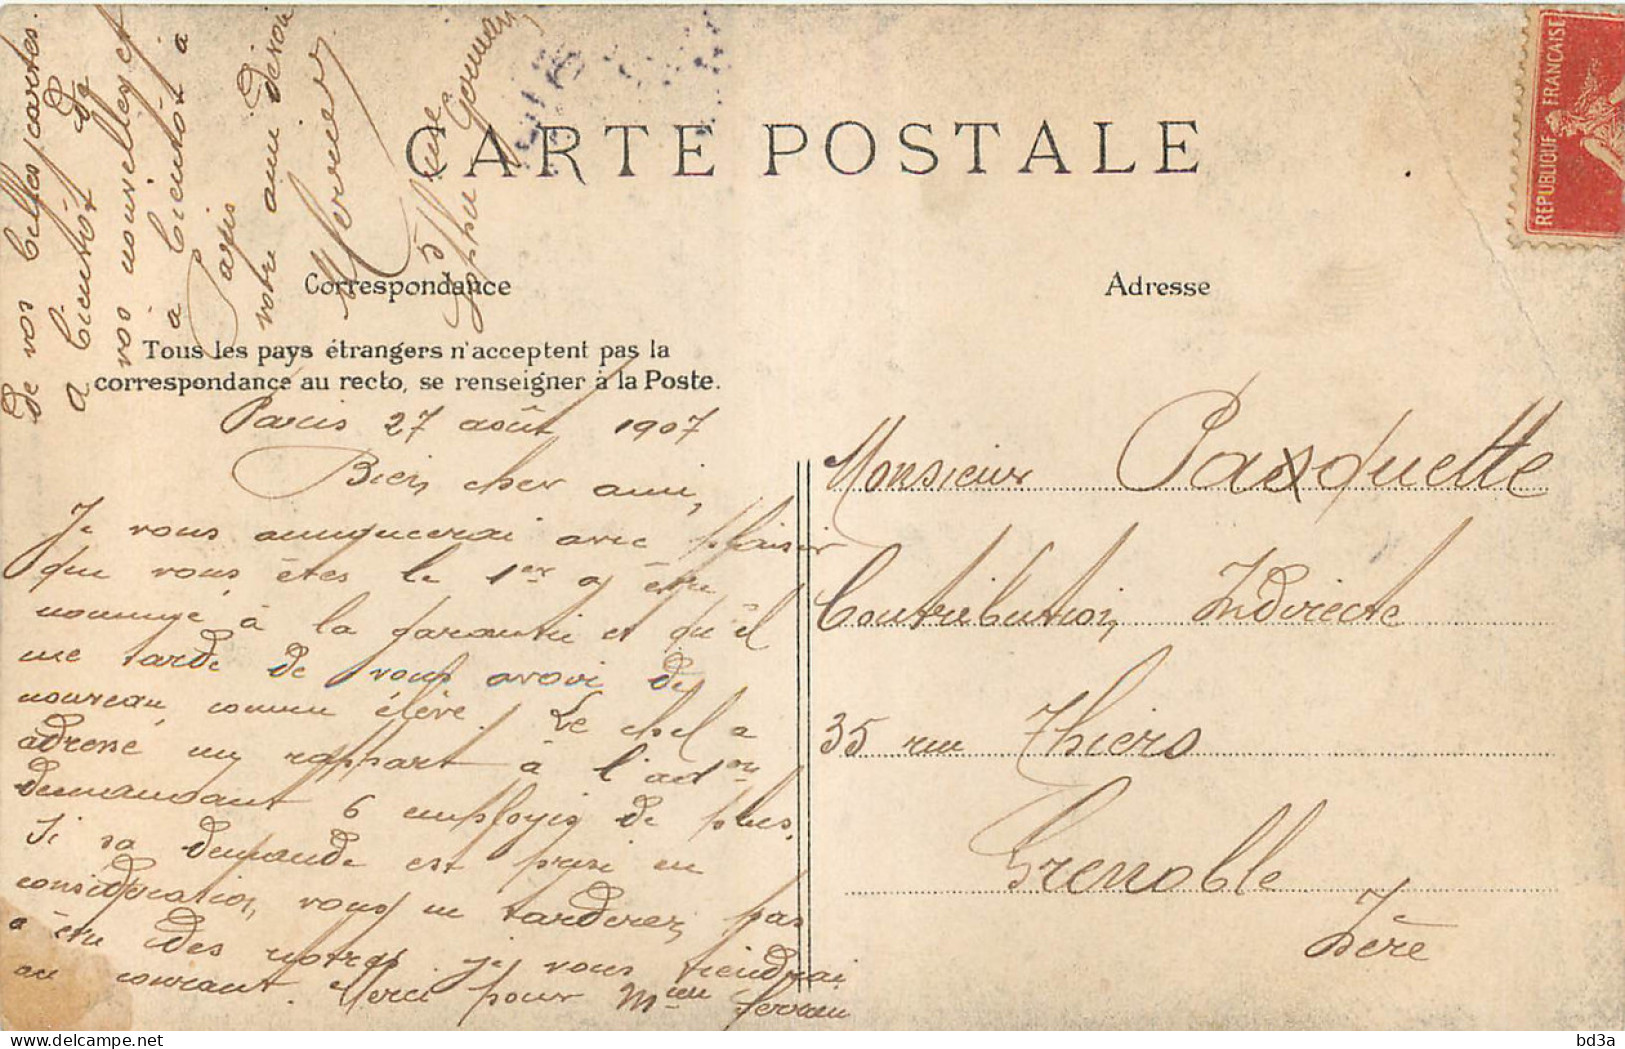 CARTE POSTALE
Correspondance
Adresse
Tous les pays étrangers n'acceptent pas la
correspondance au recto, se renseigner à la Poste.
REPUBLIQUE FRANÇAISE
Paris 27 août 1907
Bien cher ami,
Je vous annoncerai avec plaisir
que vous êtes le 1er à être
nommé à la garantie et qu'il
me tarde de vous avoir de
nouveau comme élève. Le chef a
adressé un rapport à l'adon
demandant 6 employés de plus.
Si sa demande est prise en
considération, vous ne tarderez pas
à être des notres. je vous tiendrai
au courant. Merci pour Mme
de vos belles cartes.
A bientôt de
vos nouvelles et
à bientôt à
Paris
votre ami dévoué
Mercier
5 rue
Monsieur Pasquette
Contribution Indirecte
35 rue Thiers
Grenoble
Isère
bd3a